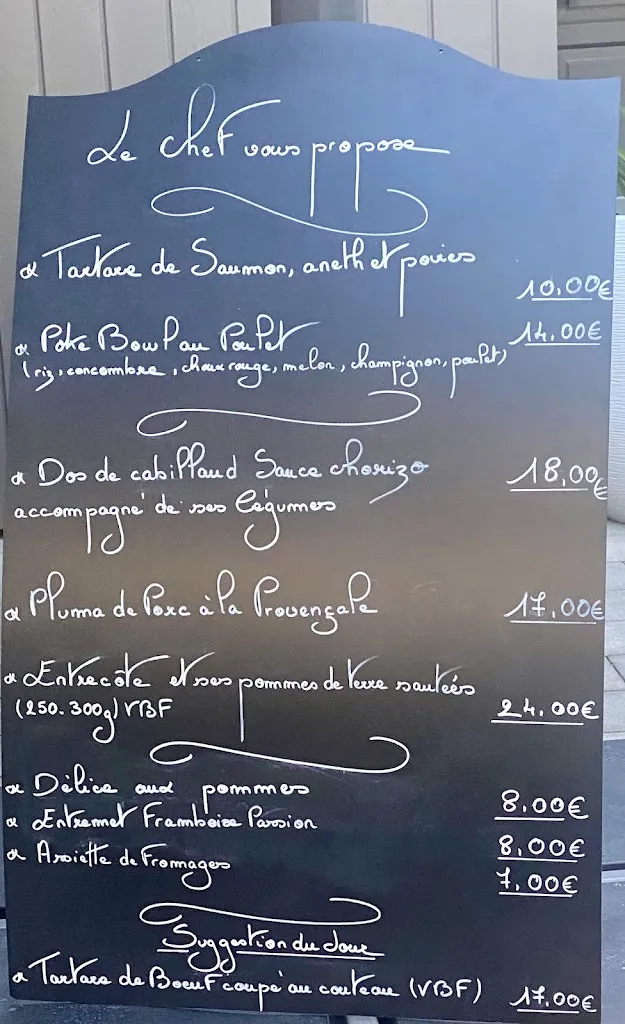 Le chef vous propose
* Tartare de Saumon, aneth et poires 10,00€
* Poke Bowl au Poulet 14,00€
(riz, concombre, choux rouge, melon, champignon, poulet)
* Dos de cabillaud Sauce chorizo 18,00€
accompagné de ses légumes
* Pluma de Porc à la Provençale 17,00€
* Entrecôte et ses pommes de terre sautées
(250-300g) VBF 24,00€
* Délice aux pommes 8,00€
* Entremet Framboise Passion 8,00€
* Assiette de Fromages 7,00€
Suggestion du Jour
* Tartare de Boeuf coupé au couteau (VBF) 17,00€